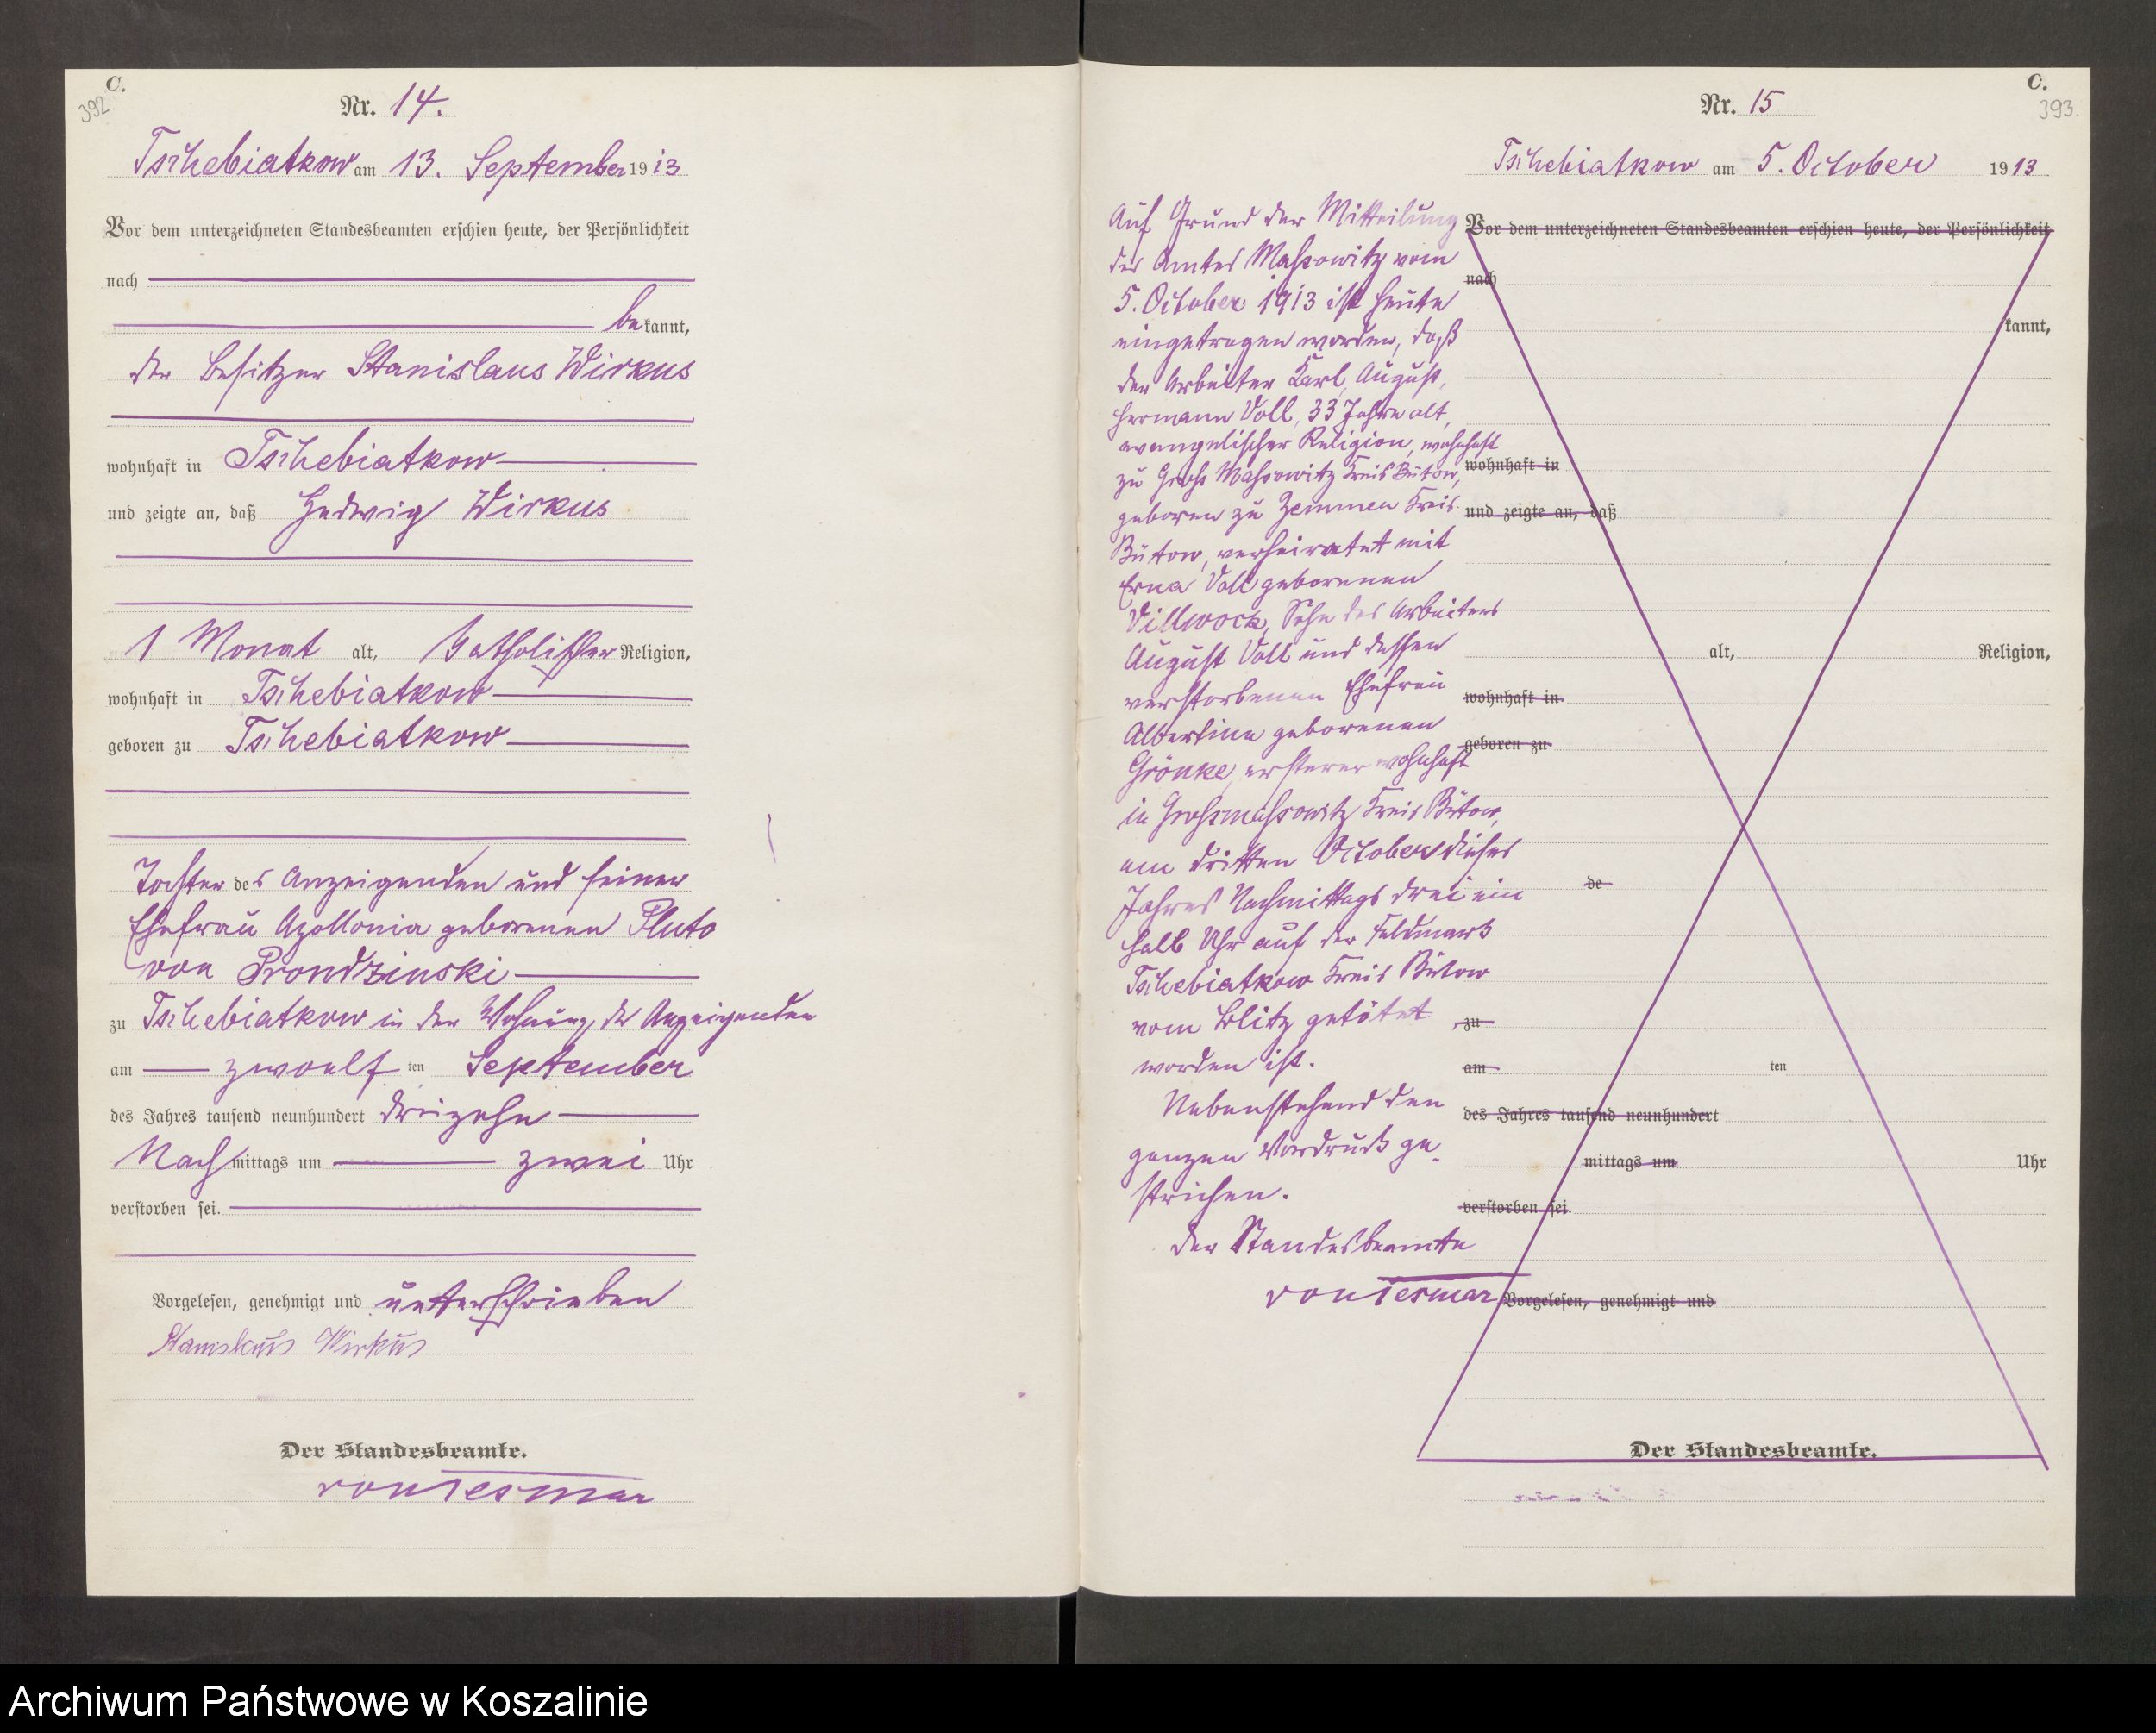 C.
392.
Nr. 14.
Tschebiatkow am 13. September 1913
Vor dem unterzeichneten Standesbeamten erschien heute, der Persönlichkeit
nach
bekannt,
der Besitzer Stanislaus Wirkus
wohnhaft in Tschebiatkow
und zeigte an, daß Hedwig Wirkus
1 Monat alt, katholischer Religion,
wohnhaft in Tschebiatkow
geboren zu Tschebiatkow
Tochter des Anzeigenden und seiner
Ehefrau Apollonia geborenen Pluto
von Prondzinski
zu Tschebiatkow in der Wohnung des Anzeigenden
am zwoelf ten September
des Jahres tausend neunhundert dreizehn
Nachmittags um zwei Uhr
verstorben sei.
Vorgelesen, genehmigt und unterschrieben
Stanislaus Wirkus
Der Standesbeamte.
von Tesmar
C.
393.
Nr. 15
Tschebiatkow am 5. October 1913
Auf Grund der Mitteilung
des Amtes Massowitz vom
5. October 1913 ist heute
eingetragen worden, daß
der Arbeiter Karl, August,
Hermann Voll, 33 Jahre alt,
evangelischer Religion, wohnhaft
zu Gross Massowitz Kreis Bütow,
geboren zu Zemmen Kreis
Bütow, verheiratet mit
Erna Voll geborenen
Villwock, Sohn des Arbeiters
August Voll und dessen
verstorbenen Ehefrau
Albertine geborenen
Grönke, ersterer wohnhaft
in Grossmassowitz Kreis Bütow,
am dritten October dieses
Jahres Nachmittags drei ein
halb Uhr auf der Feldmark
Tschebiatkow Kreis Bütow
vom Blitz getötet
worden ist.
Nebenstehend den
ganzen Vordruck ge-
strichen.
Der Standesbeamte
von Tesmar
Vor dem unterzeichneten Standesbeamten erschien heute, der Persönlichkeit
nach
kannt,
wohnhaft in
und zeigte an, daß
alt, Religion,
wohnhaft in
geboren zu
de
zu
am ten
des Jahres tausend neunhundert
mittags um Uhr
verstorben sei.
Vorgelesen, genehmigt und
Der Standesbeamte.
Archiwum Państwowe w Koszalinie